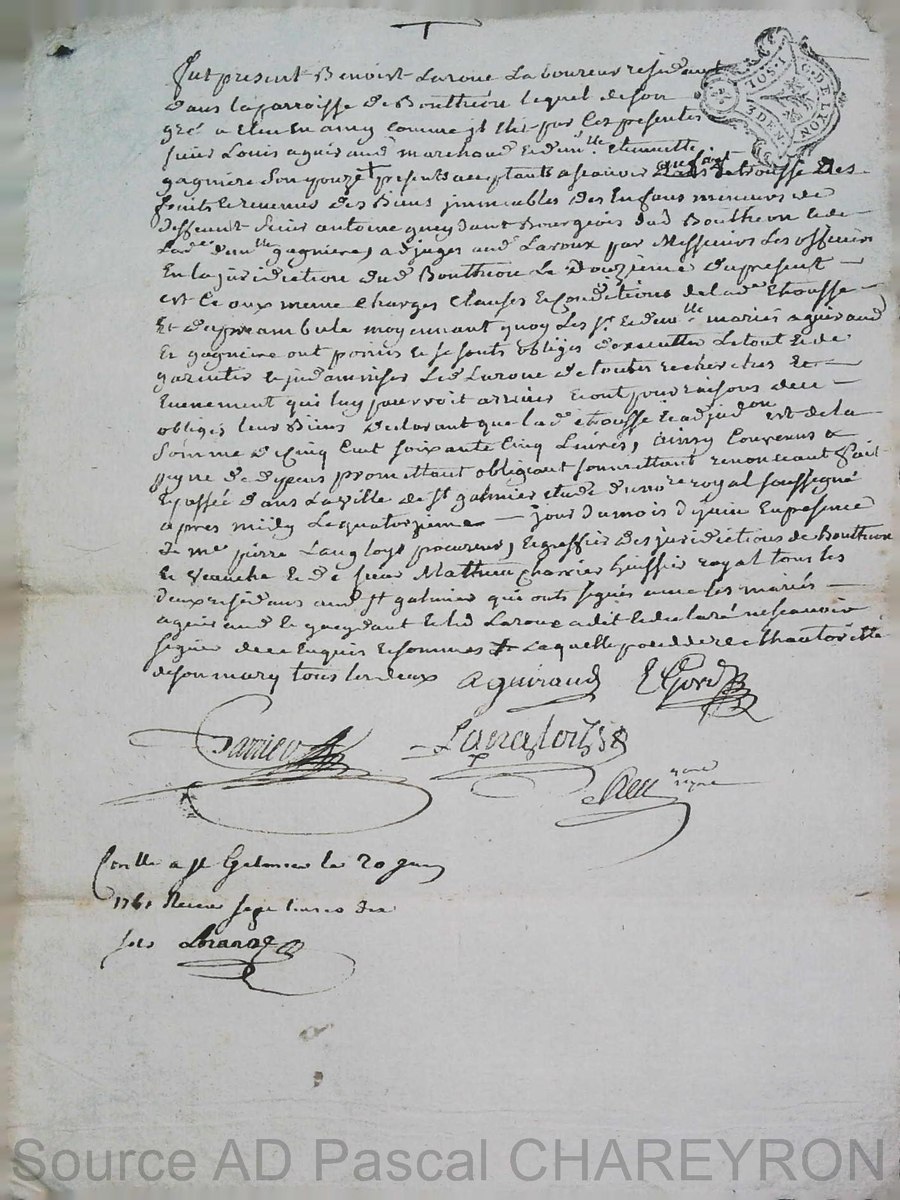 G. DE LYON
1 SOL
3 DEN
Fut present Benoist Laroue Laboureur résidant
dans la parroisse de Bouthéon lequel de son
gré a Eleu En amy comme jl Elit par Ces presentes
sieur Louis aguiraud marchand Et dm.lle Etiennette
gagnière son épouze + presents acceptants a scauoir
fruits Et reuenus des Biens jmmeubles des Enfans mineurs de
deffeunt Sieur antoine gueydant Bourgeois dud Bouthéon & de
Lad.e dm.lle gagnière, adjugés aud Laroux par Messieurs Les officiers
En la jurisdiction dud Bouthéon Le Douzième du present
Et Ce aux meme Charges Clauses & Conditions de lad.e Etrousse
Et du preambule moyennant quoy Les s.r Et dm.lle mariés aguiraud
Et gagnière ont promis Et se sonts obligés d'executter Le tout & de
garentir & jndamniser Led Laroue de touttes recherches &
Euenement qui luy pourroit arriuer Et ont pour raisons de ce
obligés leur Biens Declarant que lad Etrousse Et adjud.on est de la
Somme de Cinq Cent soixante Cinq Liures, ainsy Conuenus a
peyne de dépens promettant obligeant soumettant renonceant fait
Et passée dans La Ville de St galmier Etude du no.re royal soussigné
apres midy Le quatorzieme — jour du mois de juin En presence
de m.e pierre Langloys procureur, Et greffier des jurisdictions de Bouthéon
Et Veauche Et de sieur Mathieu Charrier huissier royal tous les
deux résidans aud St galmier qui onts signés auec les mariés
aguiraud Et led Laroue a dit Et declaré ne scauoir
signer de ce Enquis Et sommés + Laquelle procede de Lauthoritté
de son mary tous les deux
Aguiraud
Langlois
Conllé a St Galmier le 20 juin
1761 Receu sept liures dix
sols
Source AD Pascal CHAREYRON